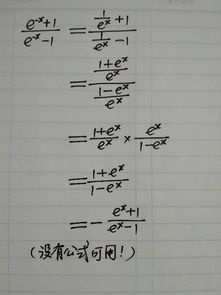 (e^-x+1)/(e^-x-1) = (1/e^x +1)/(1/e^x -1)
= ((1+e^x)/e^x)/((1-e^x)/e^x)
= (1+e^x)/e^x × e^x/(1-e^x)
= (1+e^x)/(1-e^x)
= - (e^x+1)/(e^x-1)
(没有公式可用!)